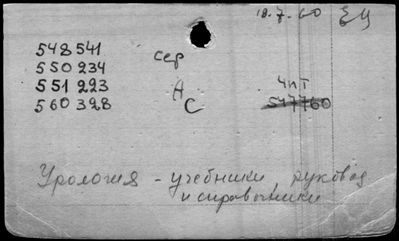 18.7-60 ЕЦ
548541 сер
550234
551223 А чпТ
560328 С 517760
Урология - учебники, руковод
и справочники